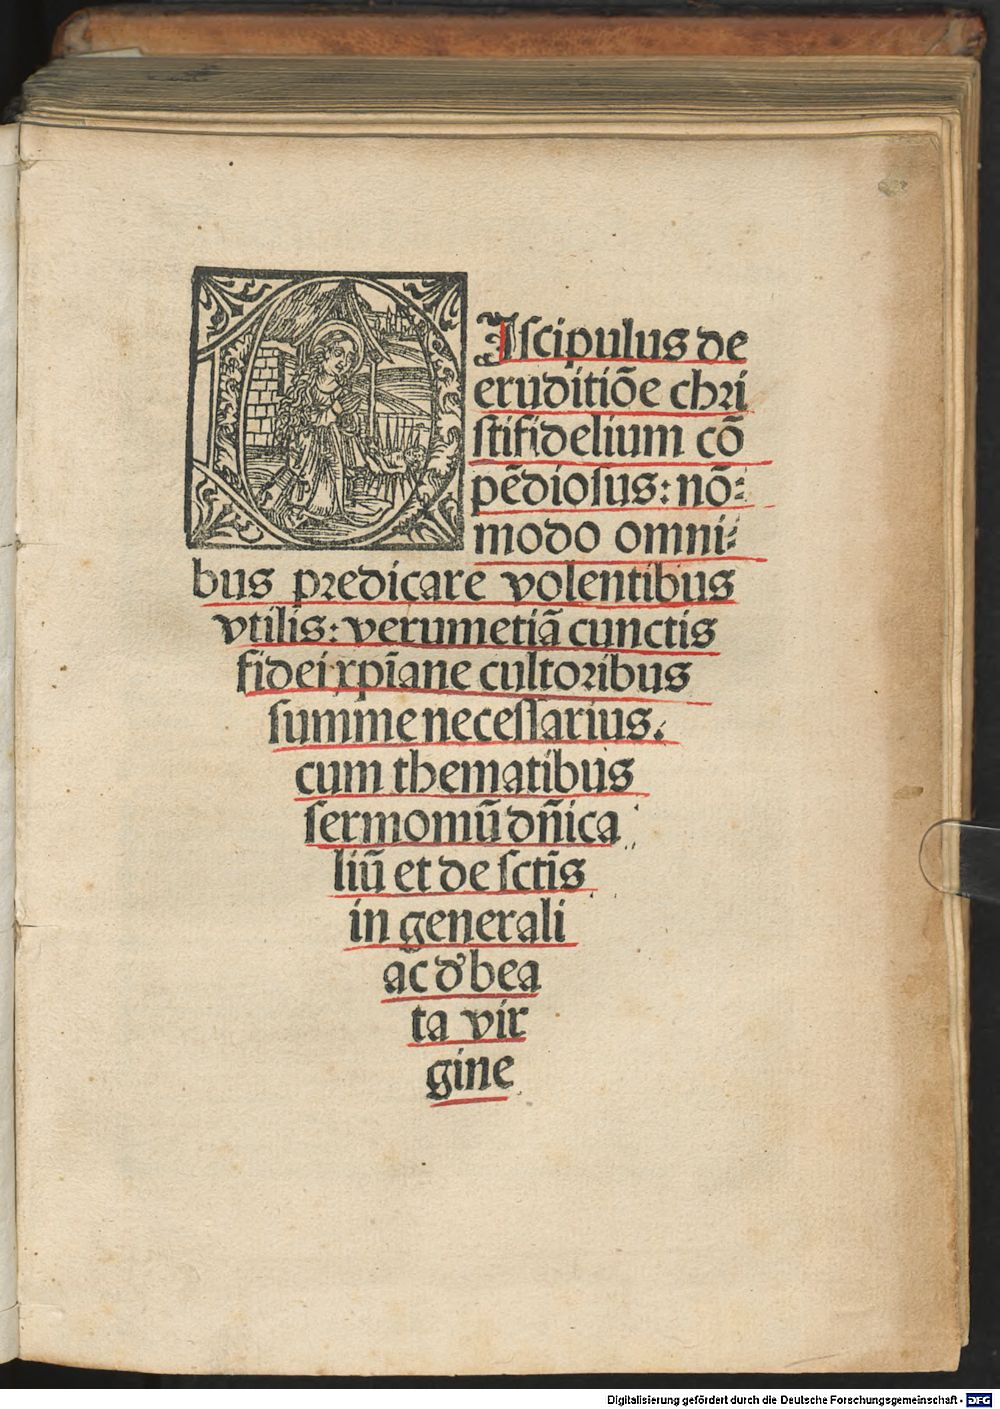 DIſcipulus de
eruditiōe chꝛi
ſtifidelium cō
pēdioſus: nō⸗
modo omni⸗
bus pꝛedicare volentibus
vtilis: verumetiā cunctis
fidei xp̄iane cultoꝛibus
ſumme neceſſarius.
cum thematibus
ſermomū dn̄ica
liū et de ſctīs
in generali
ac d' bea
ta vir
gine
Digitalisierung gefördert durch die Deutsche Forschungsgemeinschaft - DFG